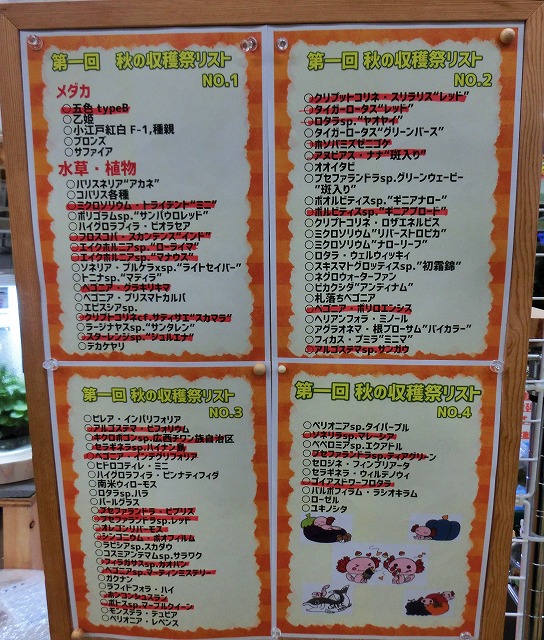 第一回 秋の収穫祭リスト
NO.1
メダカ
○五色 typeB
○乙姫
○小江戸紅白 F-1,種親
○ブロンズ
○サファイア
水草・植物
○バリスネリア"アカネ"
○コバリス各種
○ミクロソリウム・トライデント"ミニ"
○ポリゴラムsp."サンパウロレッド"
○ハイグロフィラ・ビオラセア
○フロスコパ・スカンデンス"インド"
○エイクホルニアsp."ローライマ"
○エイクホルニアsp."マナウス"
○ソネリア・ブルケラxsp."ライトセイバー"
○トニナsp."マディラ"
○ベゴニア・グラキリキマ
○ベゴニア・プリスマトカルパ
○エピスシアsp.
○クリプトコリネcf.サティサエ"スカマラ"
○ラージナヤス sp."サンタレン"
○スターレンジsp."ジュルエナ"
○テカケヤリ
第一回 秋の収穫祭リスト
NO.2
○クリプットコリネ・スリラリス"レッド"
○タイガーロータス"レッド"
○ロタラsp."ヤオヤイ"
○タイガーロータス"グリーンバース"
○ホソバミズゼニゴケ
○アヌビアス・ナナ"斑入り"
○オオイタビ
○ブセファランドラsp.グリーンウェービー
"斑入り"
○ボルビティスsp."ギニアナロー"
○ボルビティスsp."ギニアブロード"
○クリプトコリネ・ロザエネルビス
○ミクロソリウム"リバーストロピカ"
○ミクロソリウム"ナローリーフ"
○ロタラ・ウェルウィッキィ
○スキスマトグロッティスsp."初霧錦"
○ネグロウォーターファン
○ピカクシダ"アンティナム"
○札落ちベゴニア
○ベゴニア・ポリロエンシス
○ヘリアンフォラ・ミノール
○アグラオネマ・根ブローサム"バイカラー"
○フィカス・プミラ"ミニマ"
○アルゴステマsp.サンガウ
第一回 秋の収穫祭リスト
NO.3
○ピレア・インバリフォリア
○アルゴステマ・ビフォリウム
○キクロポゴンsp.広西チワン族自治区
○セラギネラsp.ハイナン島
○ベゴニア・インテグリフォリア
○ヒドロコティレ・ミニ
○ハイグロフィラ・ピンナティフィダ
○南米ウィローモス
○ロタラsp.ハラ
○パールグラス
○ブセファランドラ・ビブリス
○ブセファランドラsp.レッド
○オレゴンリバーモス
○シンゴニウム・ポオフィルム
○ラビシアsp.スカダウ
○コスミアンテマムsp.サラワク
○フィラガサスsp.カオバン
○ベゴニアsp.マーティンミステリー
○ガクナン
○ラフィドフォラ・ハイ
○ホンコンシュスラン
○ポトスsp.マーブルクイーン
○モンステラ・デュビア
○ペリオニア・レペンス
第一回 秋の収穫祭リスト
NO.4
○ペリオニアsp.タイパープル
○ソネリラsp.マレーシア
○ペペロミアsp.エクアドル
○ブセファランドラsp.ティアグリーン
○セロジネ・フィンブリアータ
○セラギネラ・ウィルデノウィ
○コイアストワーフロタラ
○バルボフィラム・ラシオキラム
○ローゼル
○ユキノシタ